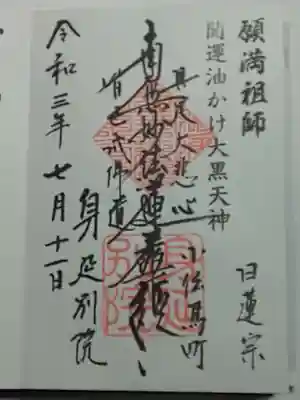 願満祖師
開運油かけ大黒天神
日蓮宗
具足大悲心
小伝馬町
南無妙法蓮華経
皆已成佛道
身延別院
令和三年七月十一日
身延
別院